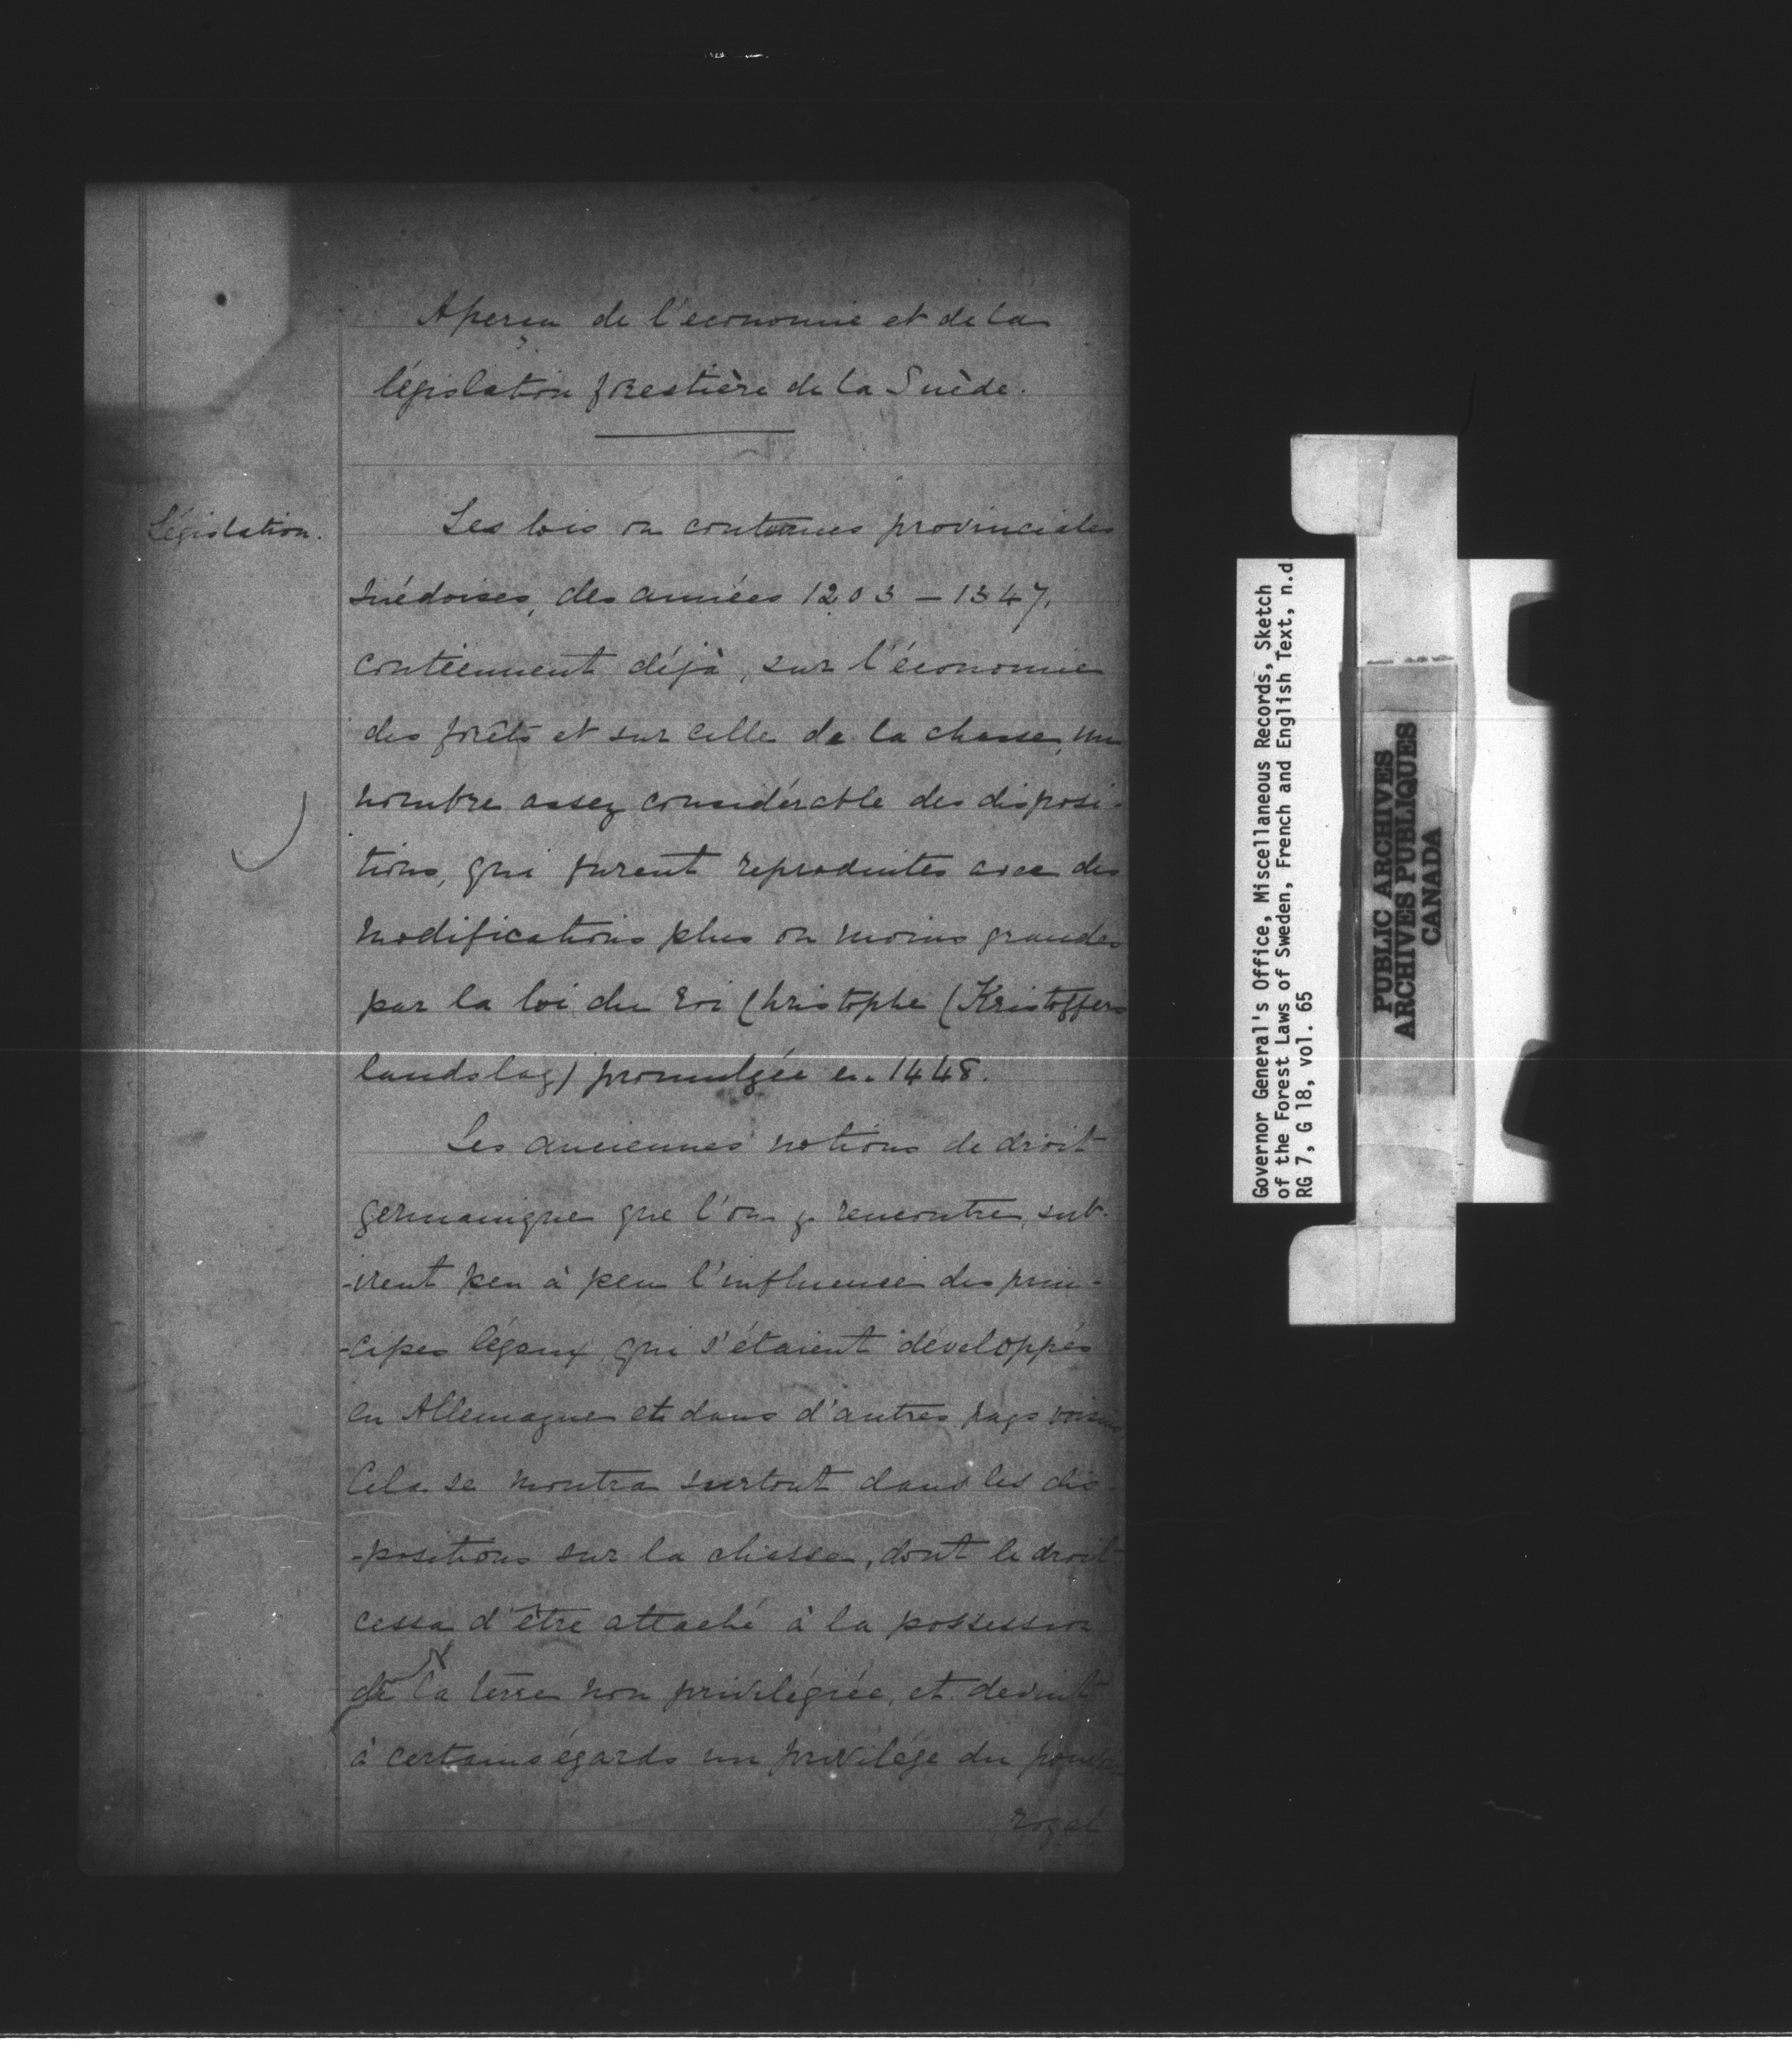 Aperçu de l'économie et de la
législation forestière de la Suède.
Législation.
Les lois ou coutumes provinciales
suédoises, des années 1203 – 1347,
contiennent déjà, sur l'économie
des forêts et sur celle de la chasse, un
nombre assez considérable des disposi-
tions, qui furent reproduites avec des
modifications plus ou moins grandes
par la loi du roi Christophe (Kristoffers
landslag) promulgée en 1448.
Les anciennes notions de droit
germanique que l'on y rencontre, sub-
-irent peu à peu l'influence des prin-
-cipes légaux qui s'étaient développés
en Allemagne et dans d'autres pays voisins.
Cela se montra surtout dans les dis-
-positions sur la chasse, dont le droit
cessa d'être attaché à la possession
de la terre non privilégiée, et devint
à certains égards un privilége du pouvoir
royal
Governor General's Office, Miscellaneous Records, Sketch
of the Forest Laws of Sweden, French and English Text, n.d
RG 7, G 18, vol. 65
PUBLIC ARCHIVES
ARCHIVES PUBLIQUES
CANADA